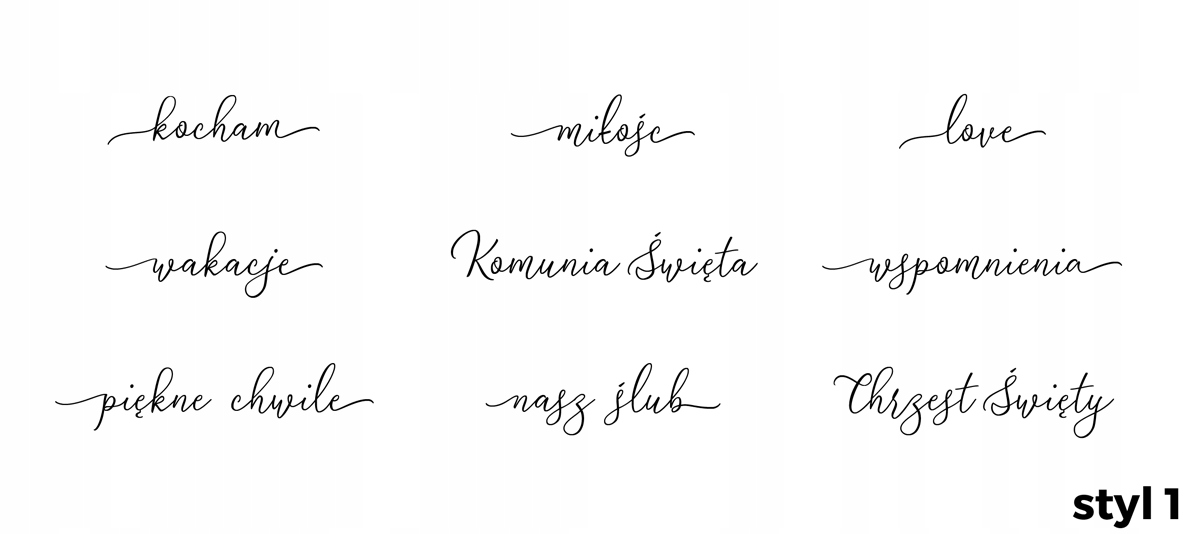 kocham
miłośc
love
wakacje
Komunia Święta
wspomnienia
piękne chwile
nasz ślub
Chrzest Święty
styl 1